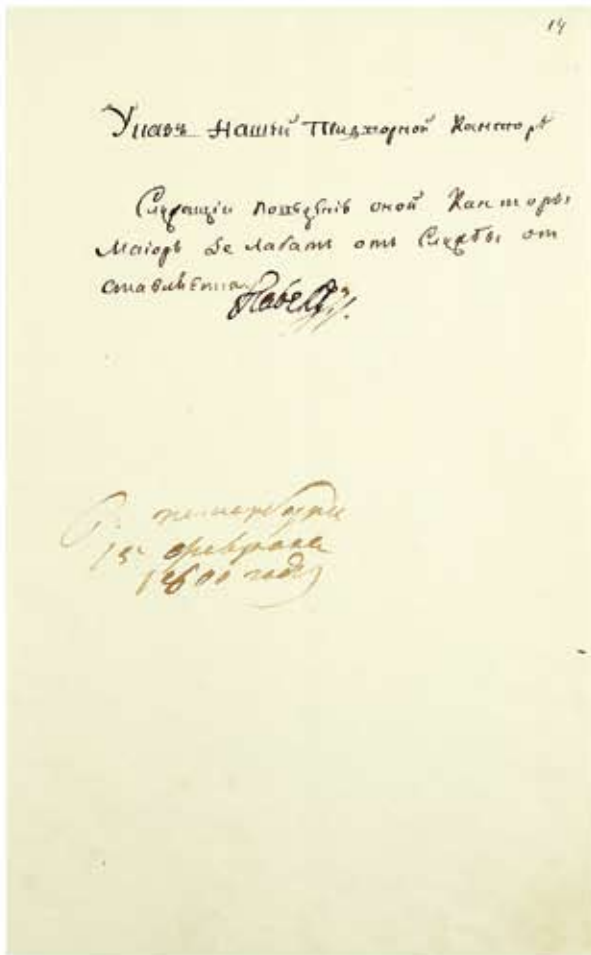 14
Указъ Нашей Придворной Канторѣ
Служащій оной Канторы
Маіоръ де Лабатъ отъ Службы от
ставляется
Павелъ
С. петербургъ
15 февраля
1800 года